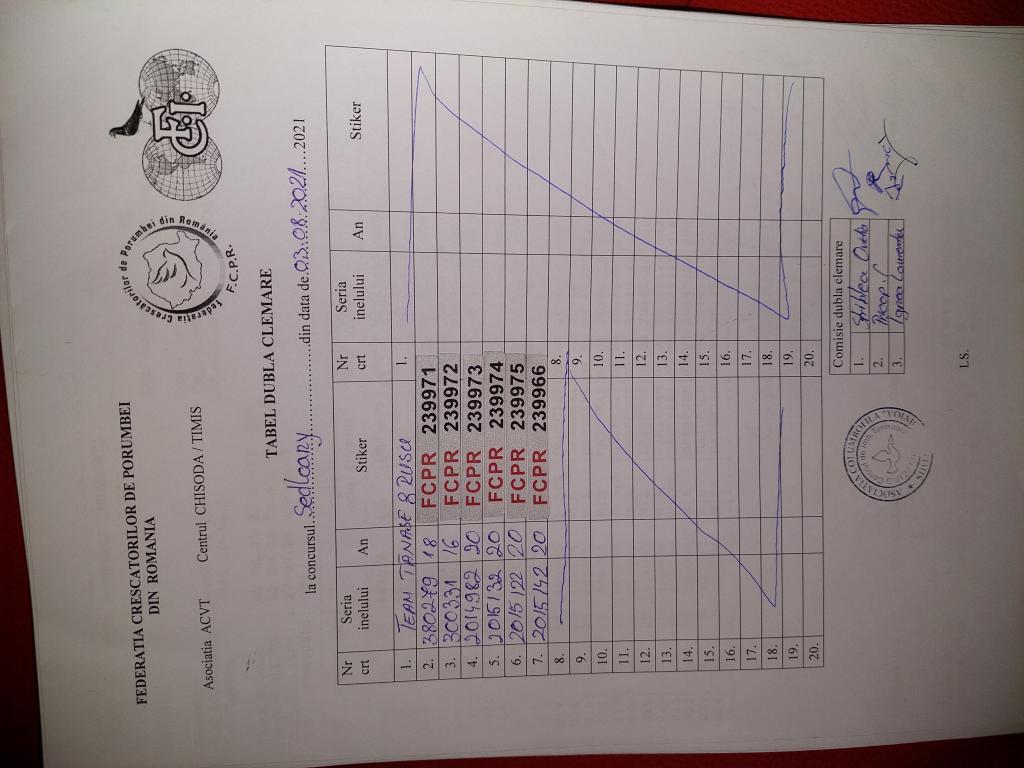 FEDERATIA CRESCATORILOR DE PORUMBEI
DIN ROMANIA
Asociatia ACVT Centrul CHISODA / TIMIS
Federația Crescătorilor de Porumbei din România
F.C.P.R.
C.F.I.
TABEL DUBLA CLEMARE
la concursul Sedlcany din data de 03.08.2021 2021
Nr crt Seria inelului An Stiker Nr crt Seria inelului An Stiker
1. TEAM TANASE & RUSU 1.
2. 380279 18 FCPR 239971
3. 300331 16 FCPR 239972
4. 2014982 20 FCPR 239973
5. 2015132 20 FCPR 239974
6. 2015122 20 FCPR 239975
7. 2015142 20 FCPR 239966
8. 8.
9. 9.
10. 10.
11. 11.
12. 12.
13. 13.
14. 14.
15. 15.
16. 16.
17. 17.
18. 18.
19. 19.
20. 20.
ASOCIATIA COLUMBOFILA
Comisie dubla clemare
1.
2.
3.
LS.